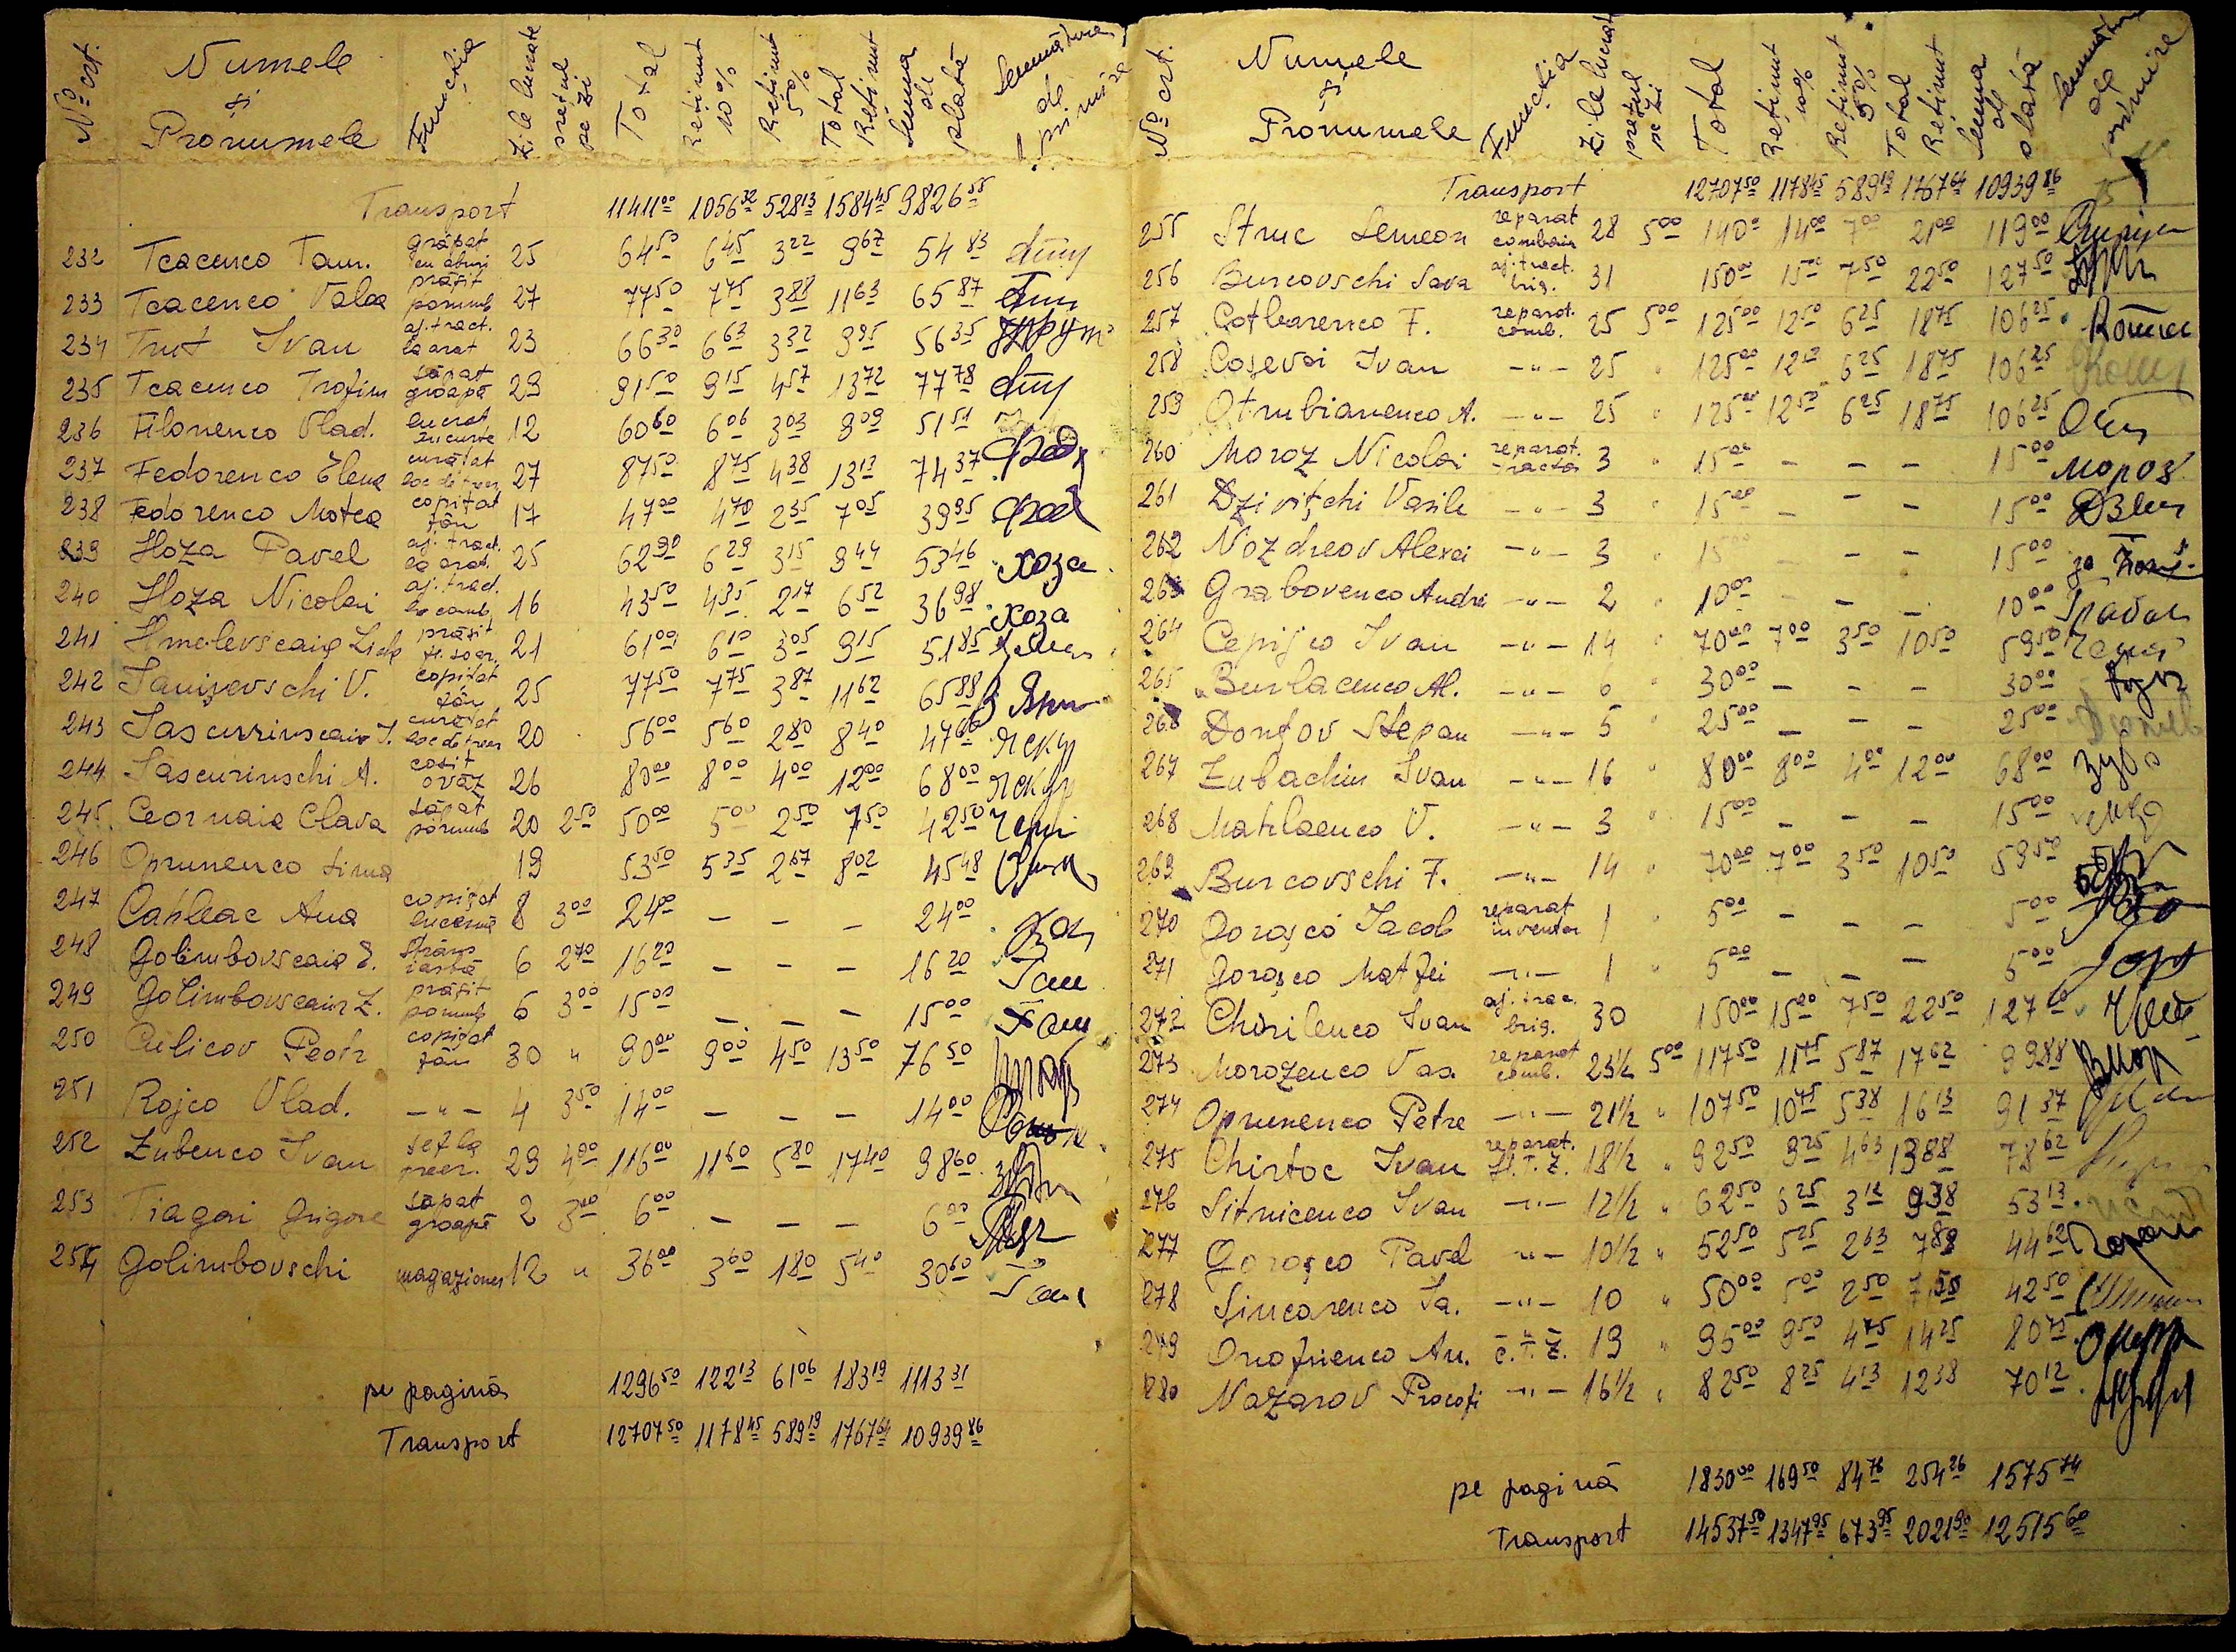 No crt. Numele și Pronumele Funcția Zile lucrate prețul pe zi Total Reținut 10% Reținut 5% Total Reținut Suma de plată Semnătura de primire
Transport 11411 00 1056 32 528 13 1584 45 9826 55
232 Tcacenco Tam. grăpat cu aburi 25 64 50 6 45 3 22 9 67 54 83
233 Tcacenco Valea prășit porumb 27 77 50 7 75 3 88 11 63 65 87
234 Trut Ivan aj. tract. la arat 23 66 30 6 63 3 32 9 95 56 35
235 Tcacenco Trofim săpat groapă 29 91 50 9 15 4 57 13 72 77 78
236 Filonenco Vlad. lucrat în curte 12 60 60 6 06 3 03 9 09 51 51
237 Fedorenco Elena curățat loc de treer 27 87 50 8 75 4 38 13 13 74 37
238 Fedorenco Motea copițat fân 17 47 00 4 70 2 35 7 05 39 95
239 Hoza Pavel aj. tract. la arat. 25 62 90 6 29 3 15 9 44 53 46 хоза
240 Hoza Nicolai aj. tract. la comb. 16 43 50 4 35 2 17 6 52 36 98 хоза
241 Hmelevscaia Lida prășit fl. soar. 21 61 00 6 10 3 05 9 15 51 85
242 Ianișevschi V. copițat fân 25 77 50 7 75 3 87 11 62 65 88
243 Iascurinscaia I. curățat loc de treer 20 56 00 5 60 2 80 8 40 47 60
244 Iascurinschi A. cosit ovăz 26 80 00 8 00 4 00 12 00 68 00
245 Ceornaia Clava săpat porumb 20 2 50 50 00 5 00 2 50 7 50 42 50
246 Oprunenco Sima 19 53 50 5 35 2 67 8 02 45 48
247 Cahleac Ana copițat lucernă 8 3 00 24 00 – – – 24 00
248 Golimbovscaia E. strâns iarbă 6 2 70 16 20 – – – 16 20
249 Golimbovscaia Z. prășit porumb 6 3 00 15 00 – – – 15 00
250 Culicov Peotr copițat fân 30 " 90 00 9 00 4 50 13 50 76 50
251 Rojco Vlad. –"– 4 3 50 14 00 – – – 14 00
252 Zubenco Ivan șef la preer. 29 4 00 116 00 11 60 5 80 17 40 98 60
253 Tiagai Grigore săpat groapă 2 3 00 6 00 – – – 6 00
254 Golimbovschi magazioner 12 " 36 00 3 60 1 80 5 40 30 60
pe pagină 1296 50 122 13 61 06 183 19 1113 31
Transport 12707 50 1178 45 589 19 1767 64 10939 86
No crt. Numele și Pronumele Funcția Zile lucrat prețul pe zi Total Reținut 10% Reținut 5% Total Reținut Suma de plată Semnătura de primire
Transport 12707 50 1178 45 589 19 1767 64 10939 86
255 Struc Semeon reparat combain 28 5 00 140 00 14 00 7 00 21 00 119 00
256 Burcovschi Sava aj. tract. brig. 31 150 00 15 00 7 50 22 50 127 50
257 Cotbarenco F. reparat. comb. 25 5 00 125 00 12 50 6 25 18 75 106 25
258 Coșevoi Ivan –"– 25 " 125 00 12 50 6 25 18 75 106 25
259 Otrubianenco A. –"– 25 " 125 00 12 50 6 25 18 75 106 25
260 Moroz Nicolai reparat. tractor 3 " 15 00 – – – 15 00 мороз
261 Dzivițchi Vasile –"– 3 " 15 00 – – – 15 00
262 Nozdreov Alexei –"– 3 " 15 00 – – – 15 00
263 Grabovenco Andrei –"– 2 " 10 00 – – – 10 00
264 Cepijco Ivan –"– 14 " 70 00 7 00 3 50 10 50 59 50
265 Burlacenco Al. –"– 6 " 30 00 – – – 30 00
266 Donțov Stepan –"– 5 " 25 00 – – – 25 00
267 Zubachin Ivan –"– 16 " 80 00 8 00 4 00 12 00 68 00
268 Mahlaenco V. –"– 3 " 15 00 – – – 15 00
269 Burcovschi F. –"– 14 " 70 00 7 00 3 50 10 50 59 50
270 Goroșco Iacob reparat inventar 1 " 5 00 – – – 5 00
271 Goroșco Matfei –"– 1 " 5 00 – – – 5 00
272 Chirilenco Ivan aj. trac. brig. 30 150 00 15 00 7 50 22 50 127 50
273 Morozenco Vas. reparat comb. 23½ 5 00 117 50 11 75 5 87 17 62 99 88
274 Oprunenco Petre –"– 21½ " 107 50 10 75 5 38 16 13 91 37
275 Chirtoc Ivan reparat. H.T.Z. 18½ " 92 50 9 25 4 63 13 88 78 62
276 Sitnicenco Ivan –"– 12½ " 62 50 6 25 3 12 9 38 53 13
277 Goroșco Pavel –"– 10½ " 52 50 5 25 2 63 7 88 44 62
278 Sincarenco Ia. –"– 10 " 50 00 5 00 2 50 7 50 42 50
279 Onofrienco An. C.T.Z. 19 " 95 00 9 50 4 75 14 25 80 75
280 Nazarov Procofi –"– 16½ " 82 50 8 25 4 13 12 38 70 12
pe pagină 1830 00 169 50 84 76 254 26 1575 74
Transport 14537 50 1347 95 673 95 2021 90 12515 60